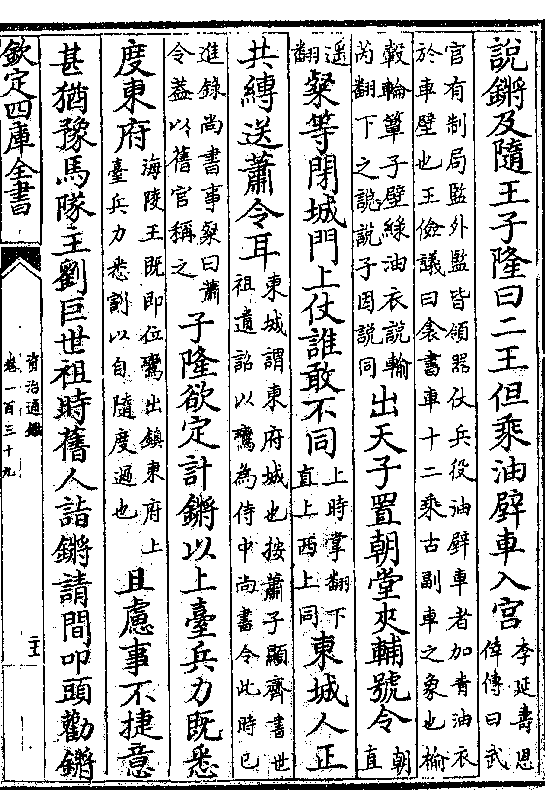 說鏘及隨王子隆曰二王但乘油壁車入宮李延壽恩倖傳曰武
官有制局監外監皆領器仗兵役油壁車者加青油衣
於車壁也王儉議曰衾書車十二乘古副車之象也榆
轂輪簟子壁綠油衣說輪
芮翻下之說說子因說同出天子置朝堂夾輔號令朝直
遥翻粲等閉城門上仗誰敢不同上時掌翻下直上西上同東城人正
共縳送蕭令耳東城謂東府城也按蕭子顯齊書世
祖遺詔以鸞為侍中尚書令此時已
進錄尚書事粲曰蕭
令葢以舊官稱之子隆欲定計鏘以上臺兵力既悉
度東府海陵王既即位鸞出鎮東府上
臺兵力悉割以自隨度過也且慮事不捷意
甚猶豫馬隊主劉巨世祖時舊人詣鏘請間叩頭勸鏘
欽定四庫全書
資治通鑑
卷一百三十九